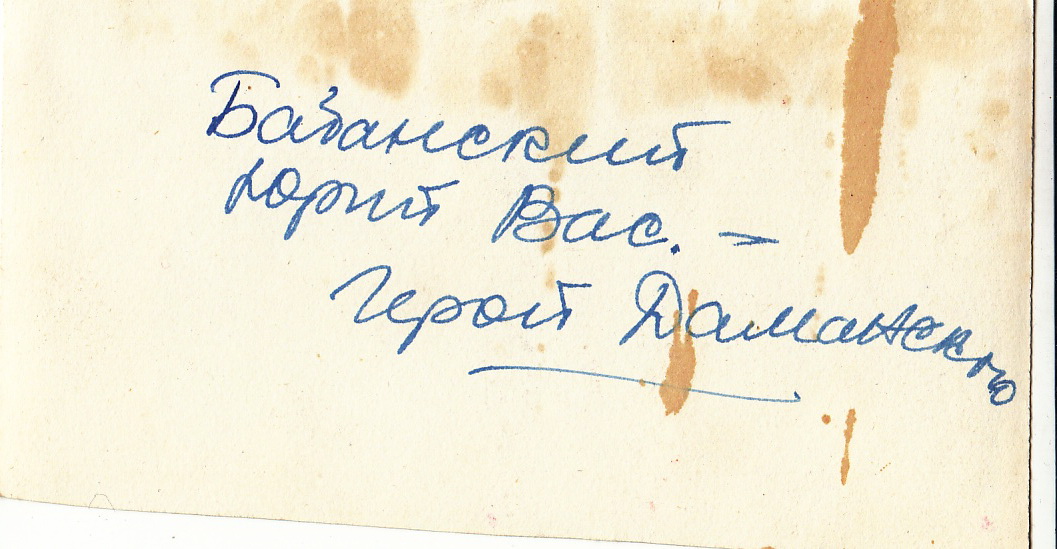 Бабанский
Юрий Вас. –
Герой Даманского